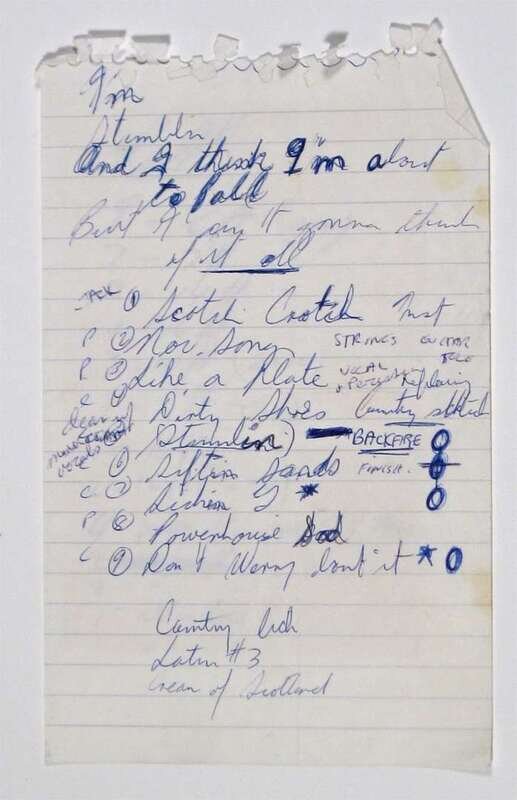 I'm
Stumblin
And I think I'm about
to fall
But I ain't gonna think
of it all
① Scotch Crotch Inst
P ② Nov. Song STRINGS GUITAR
P ③ Like a Plate VOCAL Replaying
C Dirty Shoes Country
vocals (Stumblin) BACKFIRE O
Siftin Sands FINISH.
C Lichen I * O
P ⑧ Powerhouse Sod
C ⑨ Don't Worry bout it * O
Country Lich
Latin #3
Cream of Scotland